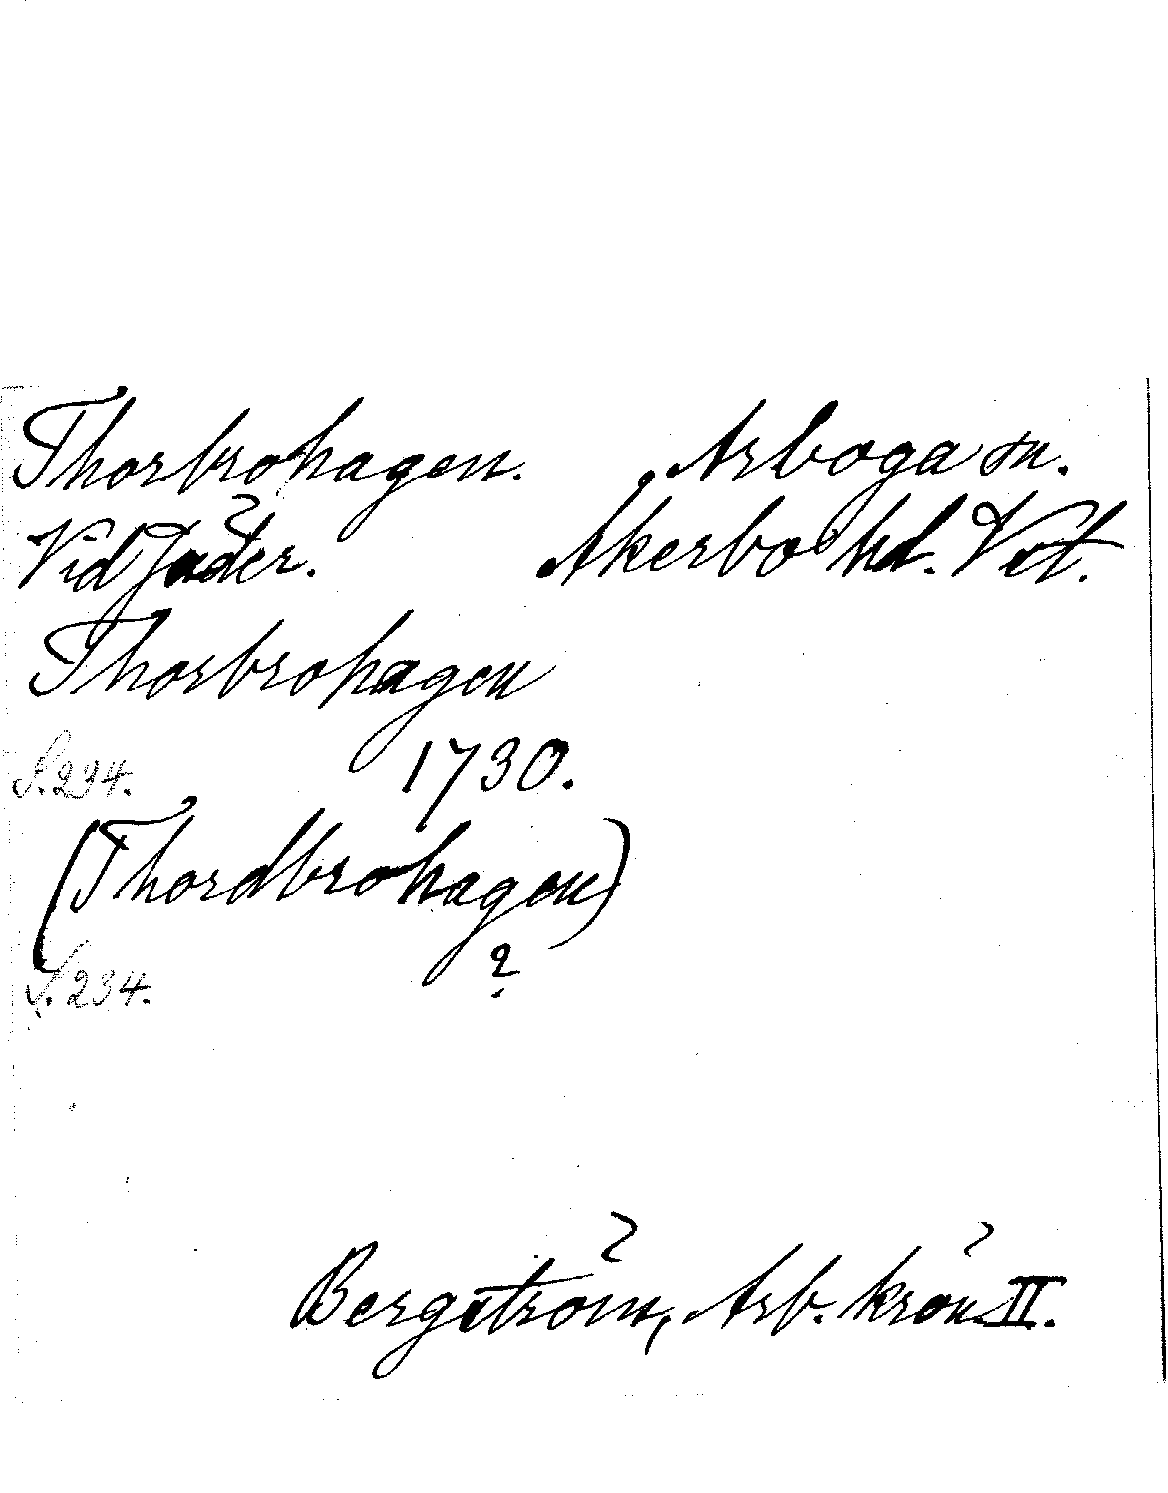 Thorbrohagen. Arboga sn.
Vid Jäder. Åkerbo hd. Vst.
Thorbrohagen
S. 234. 1730.
(Thordbrohagen)
S. 234. ?
Bergström, Arb. krön. II.